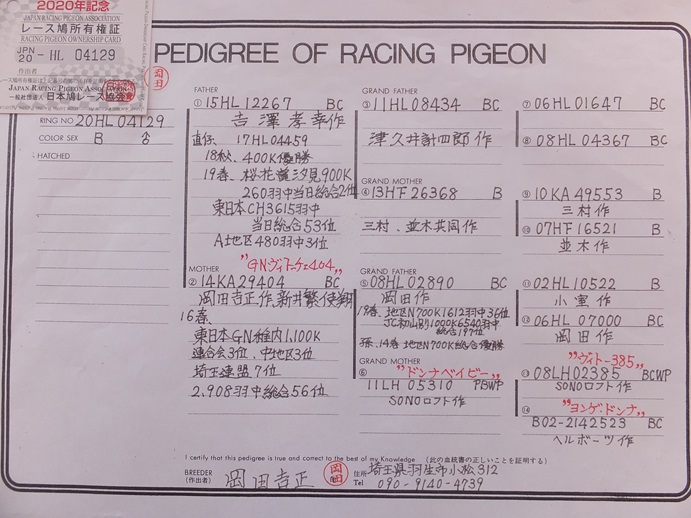 2020年記念
JAPAN RACING PIGEON ASSOCIATION
レース鳩所有権証
RACING PIGEON OWNERSHIP CARD
JPN
20 - HL 04129
作出者
JAPAN RACING PIGEON ASSOCIATION
一般社団法人 日本鳩レース協会
PEDIGREE OF RACING PIGEON
岡田
RING NO 20HL04129
COLOR SEX B ♂
HATCHED
FATHER
① 15HL12267 BC
吉澤孝幸作
直仔、17HL04459
18秋、400K優勝
19春、桜花賞汐見900K
260羽中当日総合2位
東日本CH3615羽中
当日総合53位
A地区480羽中3位
"GNヴィトーチェ404"
MOTHER
② 14KA29404 BC
岡田吉正作、新井繁使翔
16春、
東日本GN稚内1,100K
連合会3位、中地区3位
埼玉連盟7位
2,908羽中総合56位
GRAND FATHER
③ 11HL08434 BC
津久井計四郎作
GRAND MOTHER
④ 13HF26368 B
三村、並木共同作
GRAND FATHER
⑤ 08HL02890 BC
岡田作
19春、地区N700K1612羽中36位
総合197位
孫、14春地区N700K総合優勝
GRAND MOTHER "ドンナベイビー"
⑥ 11LH05310 PBWP
SONOロフト作
⑦ 06HL01647 BC
⑧ 08HL04367 BC
⑨ 10KA49553 B
三村作
⑩ 07HF16521 B
並木作
⑪ 02HL10522 B
小室作
⑫ 06HL07000 BC
岡田作
"ヴィトー385"
⑬ 08LH02385 BCWP
SONOロフト作
"ヨンゲ・ドンナ"
⑭ B02-2142523 BC
ヘルボーツ作
I certify that this pedigree is true and correct to the best of my Knowledge （此の血統書の正しいことを証明する）
BREEDER
（作出者） 岡田吉正
住所 埼玉県羽生市小松312
Tel 090-9140-4739